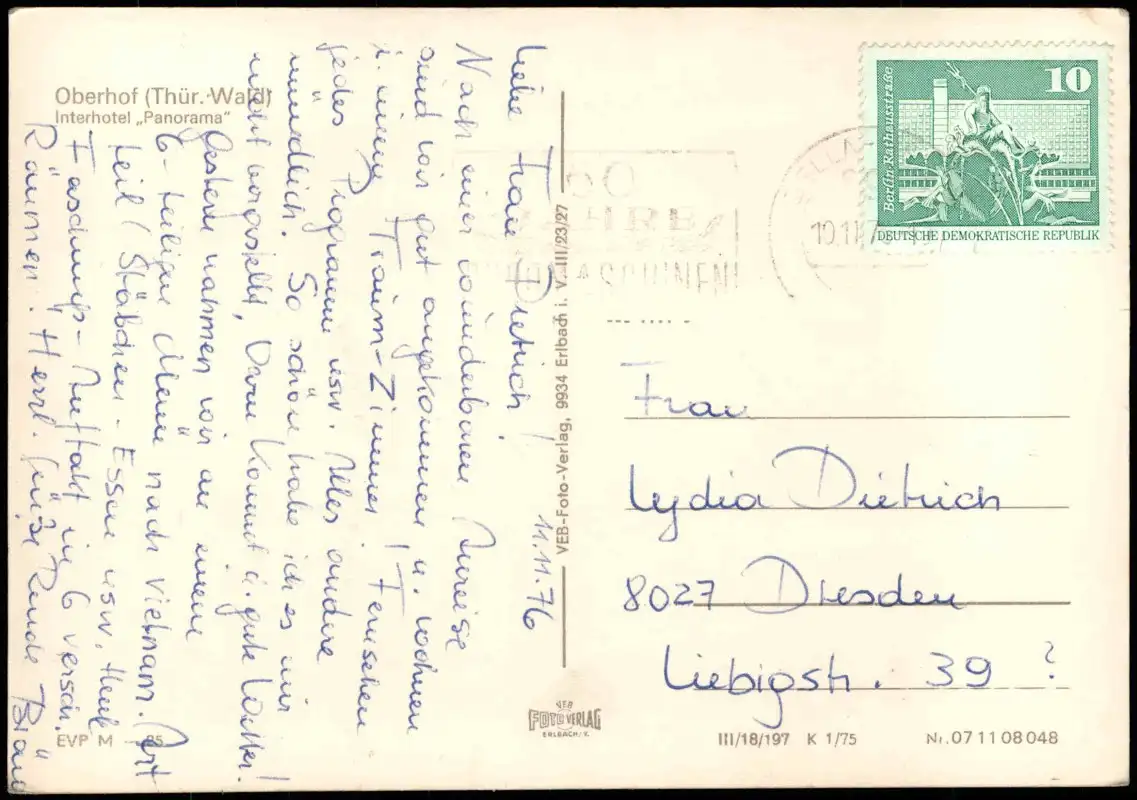 Oberhof (Thür. Wald)
Interhotel „Panorama"
11.11.76
Liebe Frau Dietrich!
Nach einer wunderbaren Anreise
sind wir gut angekommen u. wohnen
i. einem Traum-Zimmer! Fernsehen
jedes Programm usw. Alles andere
mündlich. So schön habe ich es mir
nicht vorgestellt, dazu kommt d. gute Wetter!
Gestern nahmen wir an einem
6-teiligen Menü nach Vietnam. Art
teil (Stäbchen-Essen usw. Heut
Faschings-Auftakt in 6 versch.
Räumen. Herzl. Grüße Ihnen
VEB-Foto-Verlag, 9934 Erlbach i. V. III/23/27
VEB
FOTO VERLAG
ERLBACH i. V.
EVP M -,25
10
Berlin Rathausstraße
DEUTSCHE DEMOKRATISCHE REPUBLIK
50
JAHRE
Frau
Lydia Dietrich
8027 Dresden
Liebigstr. 39 ?
III/18/197 K 1/75 Nr. 07 11 08 048